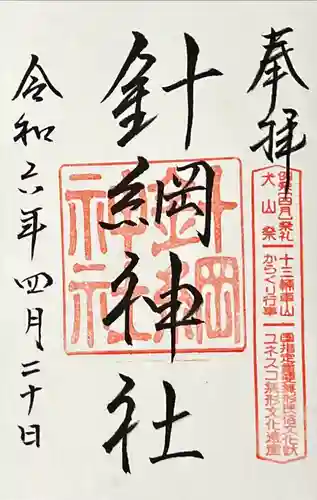 奉拝
例祭(四月)祭礼
犬山祭
十三輌車山
からくり行事
国指定重要無形民俗文化財
ユネスコ無形文化遺産
針綱神社
針綱
神社
令和六年四月二十日